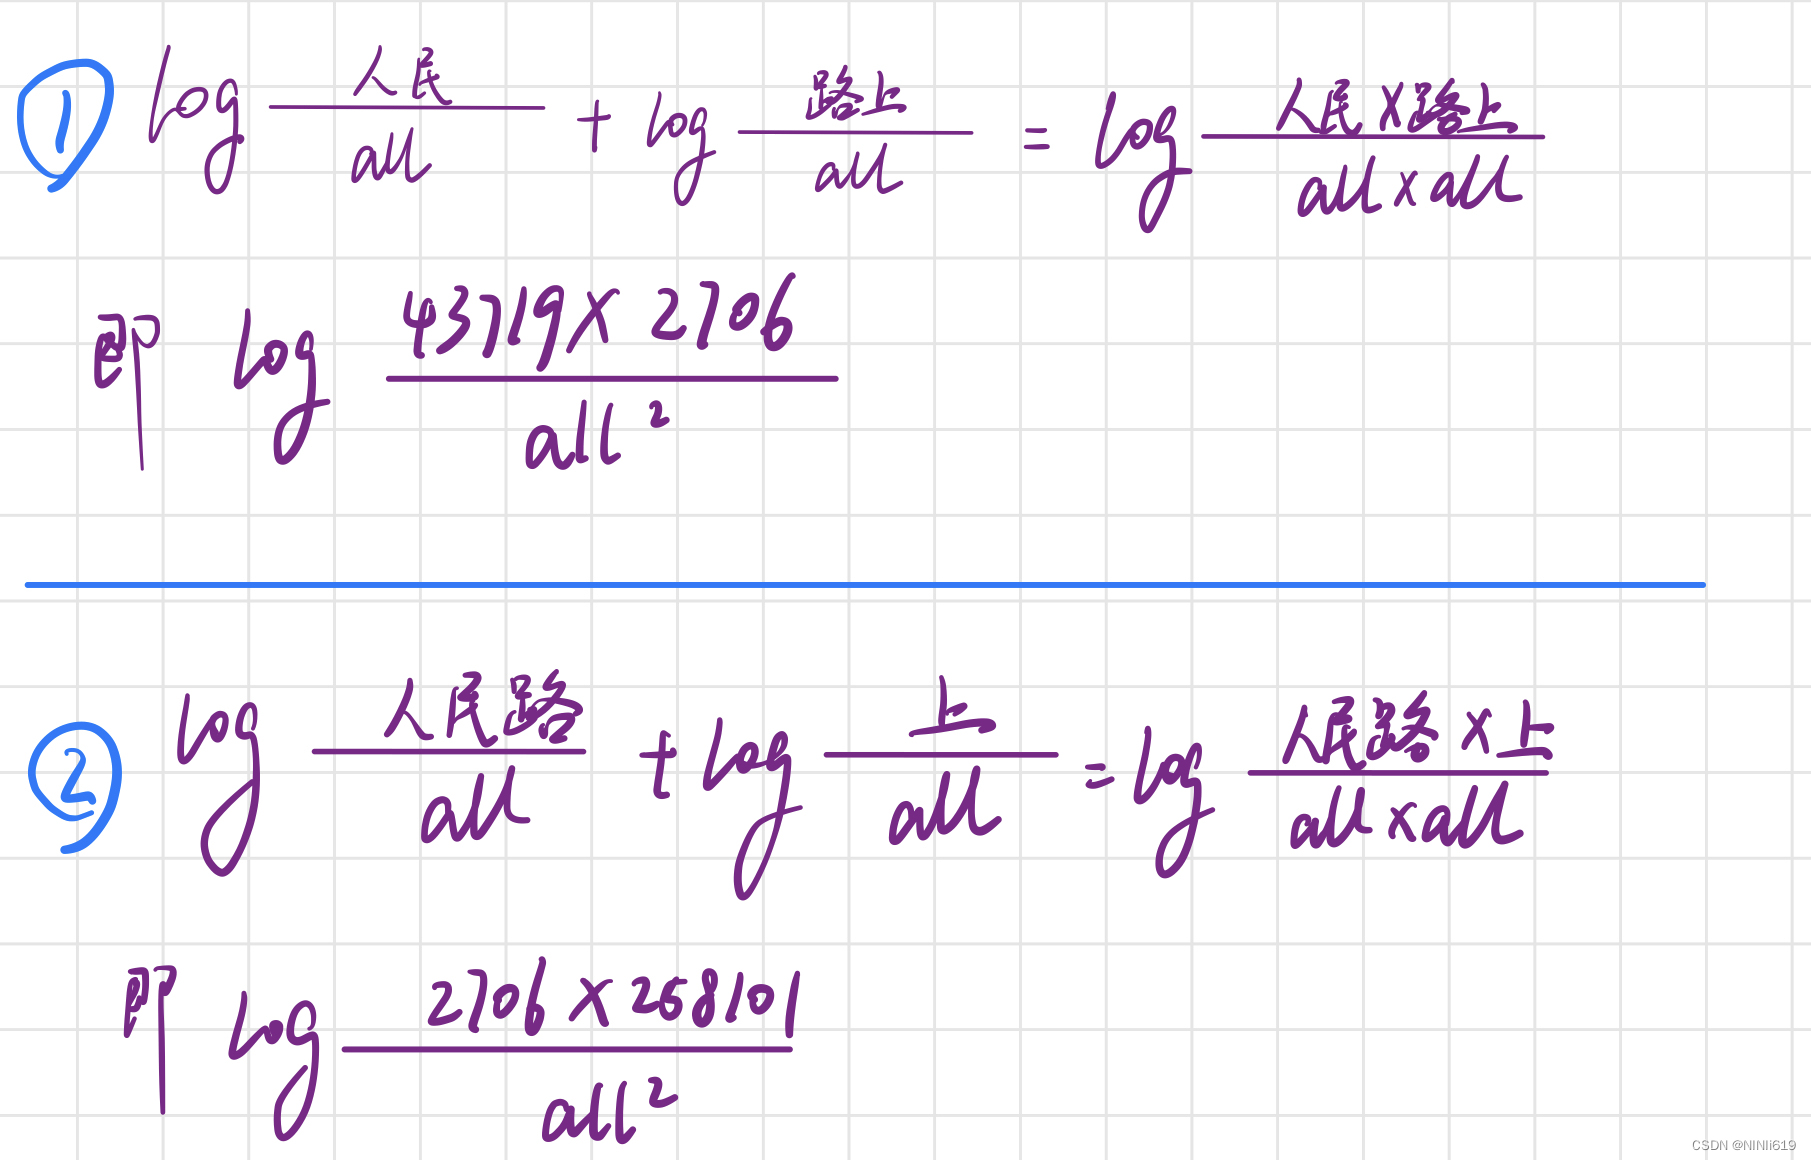 ① log 人民/all + log 路上/all = log 人民×路上/all×all
即 log 43719×2706/all²
② log 人民路/all + log 上/all = log 人民路×上/all×all
即 log 2706×268101/all²
CSDN @NINIi619